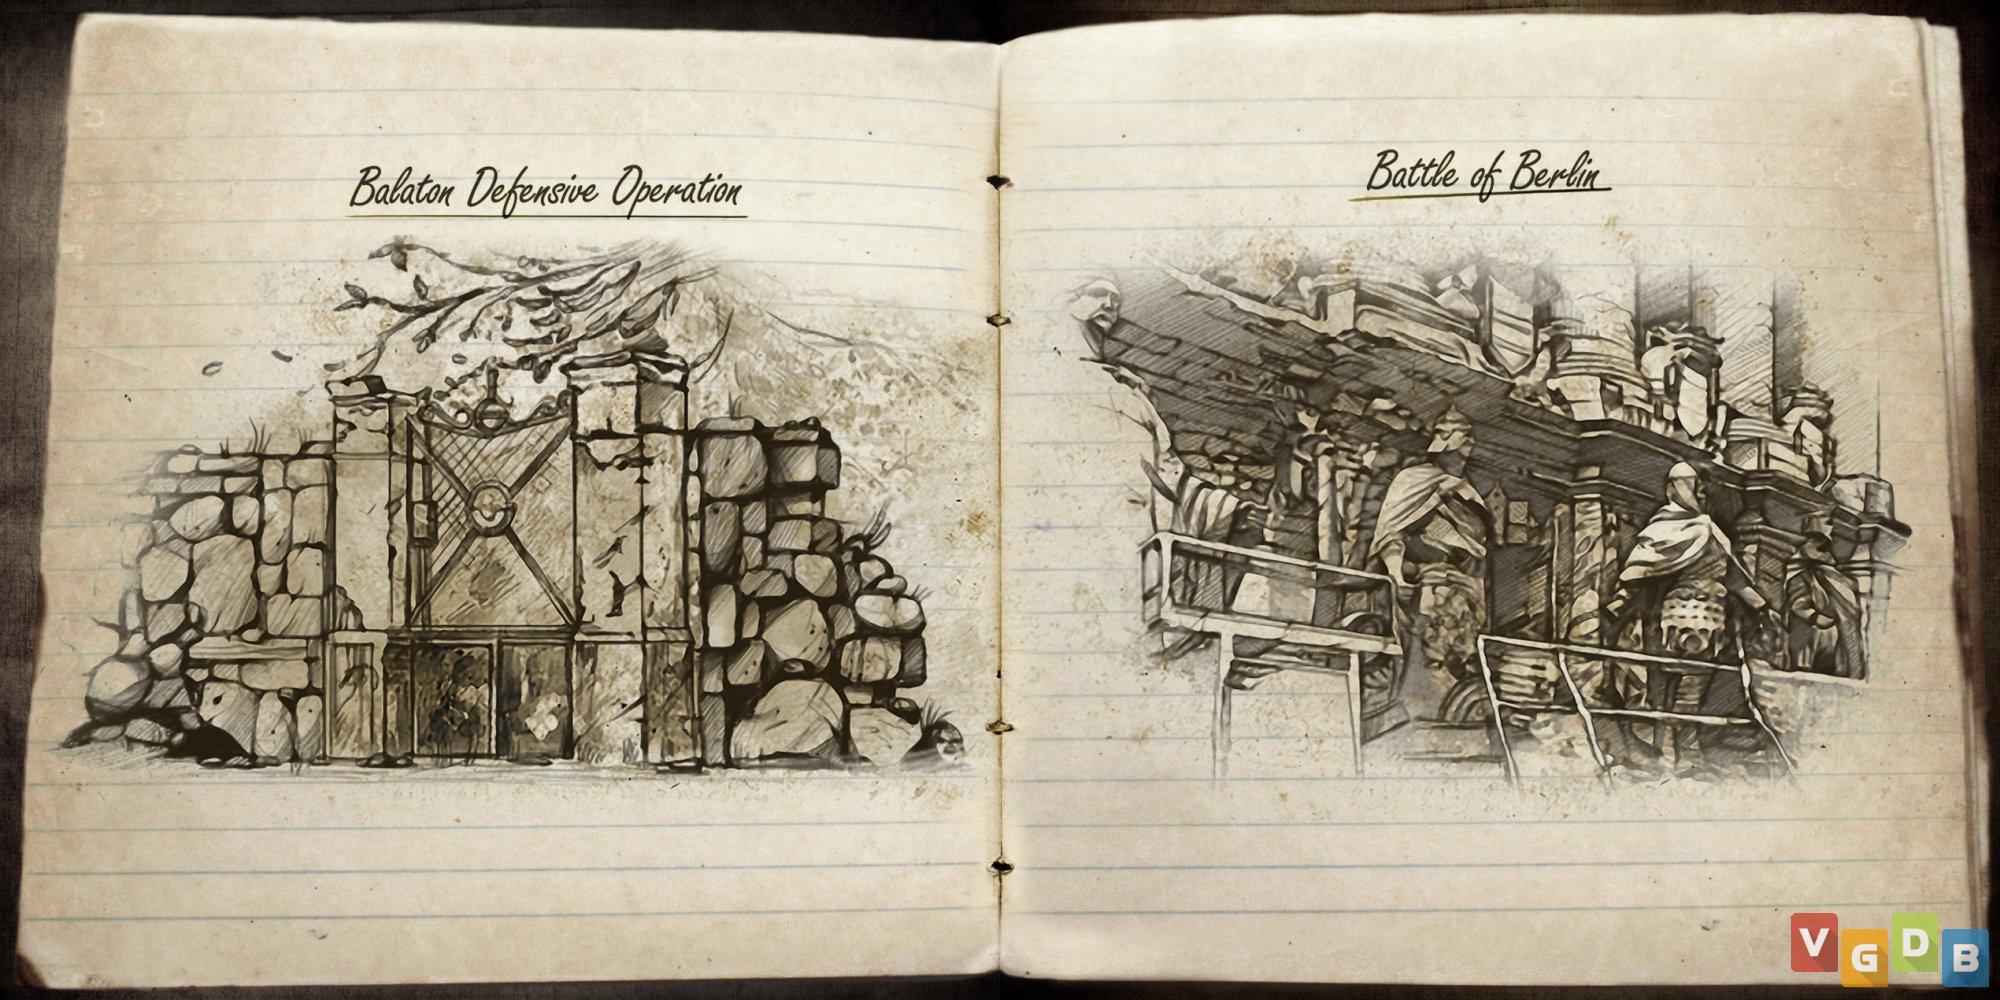 Balaton Defensive Operation
Battle of Berlin
VGDB